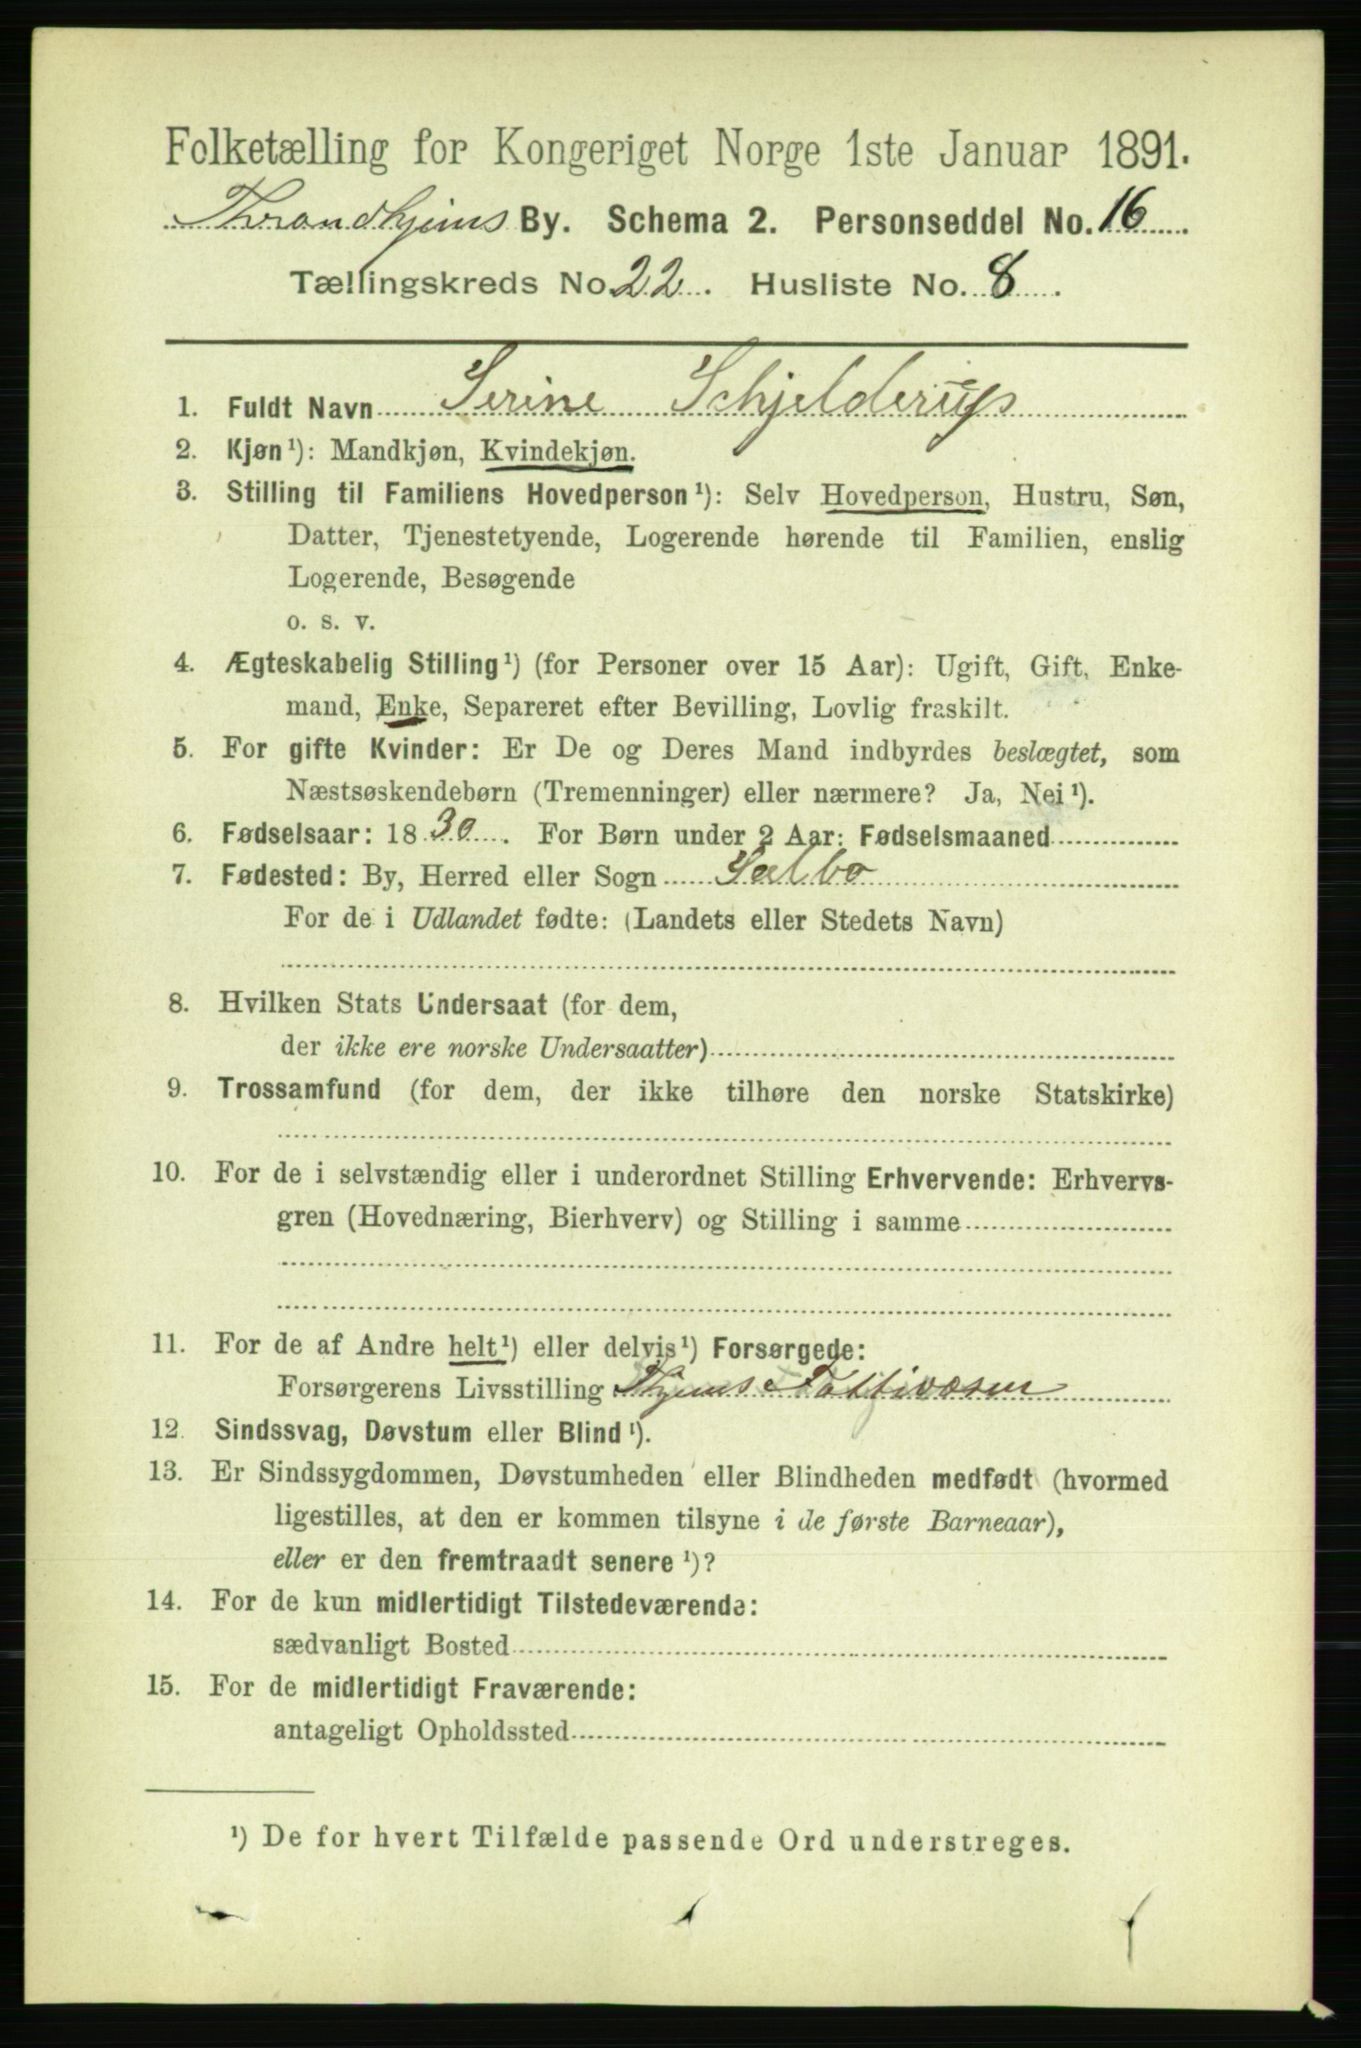 Folketælling for Kongeriget Norge 1ste Januar 1891.
Throndhjems By. Schema 2. Personseddel No. 16
Tællingskreds No. 22. Husliste No. 8.
1. Fuldt Navn Serine Schjelderup
2. Kjøn¹): Mandkjøn, Kvindekjøn.
3. Stilling til Familiens Hovedperson¹): Selv Hovedperson, Hustru, Søn,
Datter, Tjenestetyende, Logerende hørende til Familien, enslig
Logerende, Besøgende
o. s. v.
4. Ægteskabelig Stilling¹) (for Personer over 15 Aar): Ugift, Gift, Enke-
mand, Enke, Separeret efter Bevilling, Lovlig fraskilt.
5. For gifte Kvinder: Er De og Deres Mand indbyrdes beslægtet, som
Næstsøskendebørn (Tremenninger) eller nærmere? Ja, Nei¹).
6. Fødselsaar: 1830. For Børn under 2 Aar: Fødselsmaaned
7. Fødested: By, Herred eller Sogn Selbo
For de i Udlandet fødte: (Landets eller Stedets Navn)
8. Hvilken Stats Undersaat (for dem,
der ikke ere norske Undersaatter)
9. Trossamfund (for dem, der ikke tilhøre den norske Statskirke)
10. For de i selvstændig eller i underordnet Stilling Erhvervende: Erhvervs-
gren (Hovednæring, Bierhverv) og Stilling i samme
11. For de af Andre helt¹) eller delvis¹) Forsørgede:
Forsørgerens Livsstilling Thjems Fattivæsen
12. Sindssvag, Døvstum eller Blind¹).
13. Er Sindssygdommen, Døvstumheden eller Blindheden medfødt (hvormed
ligestilles, at den er kommen tilsyne i de første Barneaar),
eller er den fremtraadt senere¹)?
14. For de kun midlertidigt Tilstedeværende:
sædvanligt Bosted
15. For de midlertidigt Fraværende:
antageligt Opholdssted
¹) De for hvert Tilfælde passende Ord understreges.